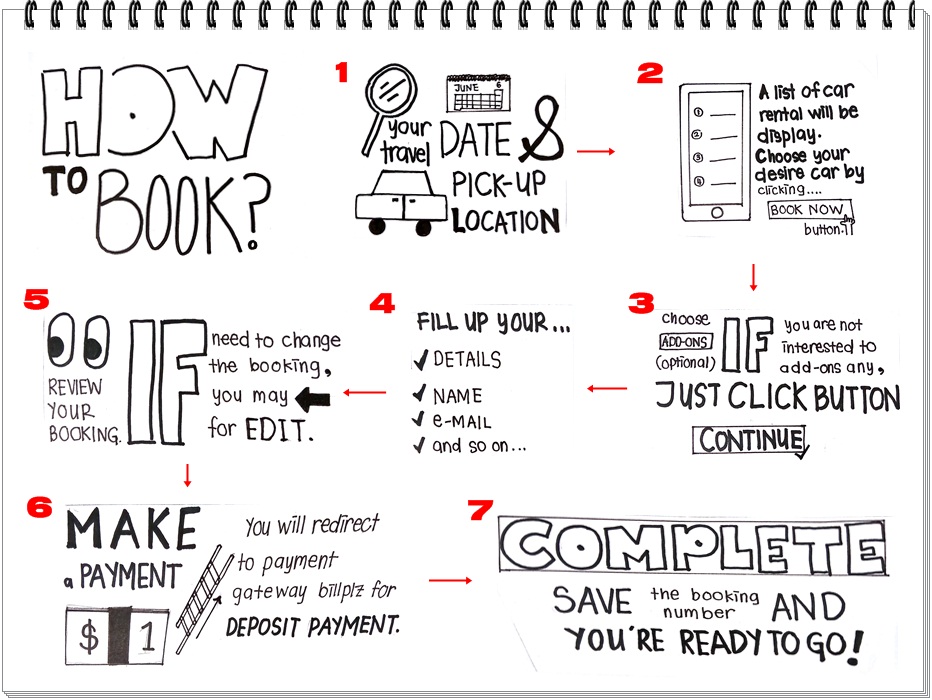 HOW
TO BOOK?
1
JUNE 6
your
travel DATE &
PICK-UP
LOCATION
2
1
2
3
4
A list of car
rental will be
display.
Choose your
desire car by
clicking....
BOOK NOW
button.
3
choose
ADD-ONS
(optional)
IF
you are not
interested to
add-ons any,
JUST CLICK BUTTON
CONTINUE
4
FILL UP YOUR...
DETAILS
NAME
e-MAIL
and so on...
5
REVIEW
YOUR
BOOKING.
IF
need to change
the booking,
you may
for EDIT.
6
MAKE
a PAYMENT
$ 1
You will redirect
to payment
gateway billplz for
DEPOSIT PAYMENT.
7
COMPLETE
SAVE the booking number AND
YOU'RE READY TO GO!